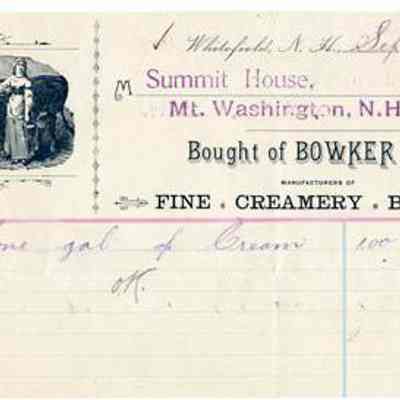 1 Whitefield, N. H. Sep
M Summit House,
Mt. Washington, N.H
Bought of BOWKER
MANUFACTURERS OF
FINE CREAMERY B
One gal of Cream 1.00
O.K.